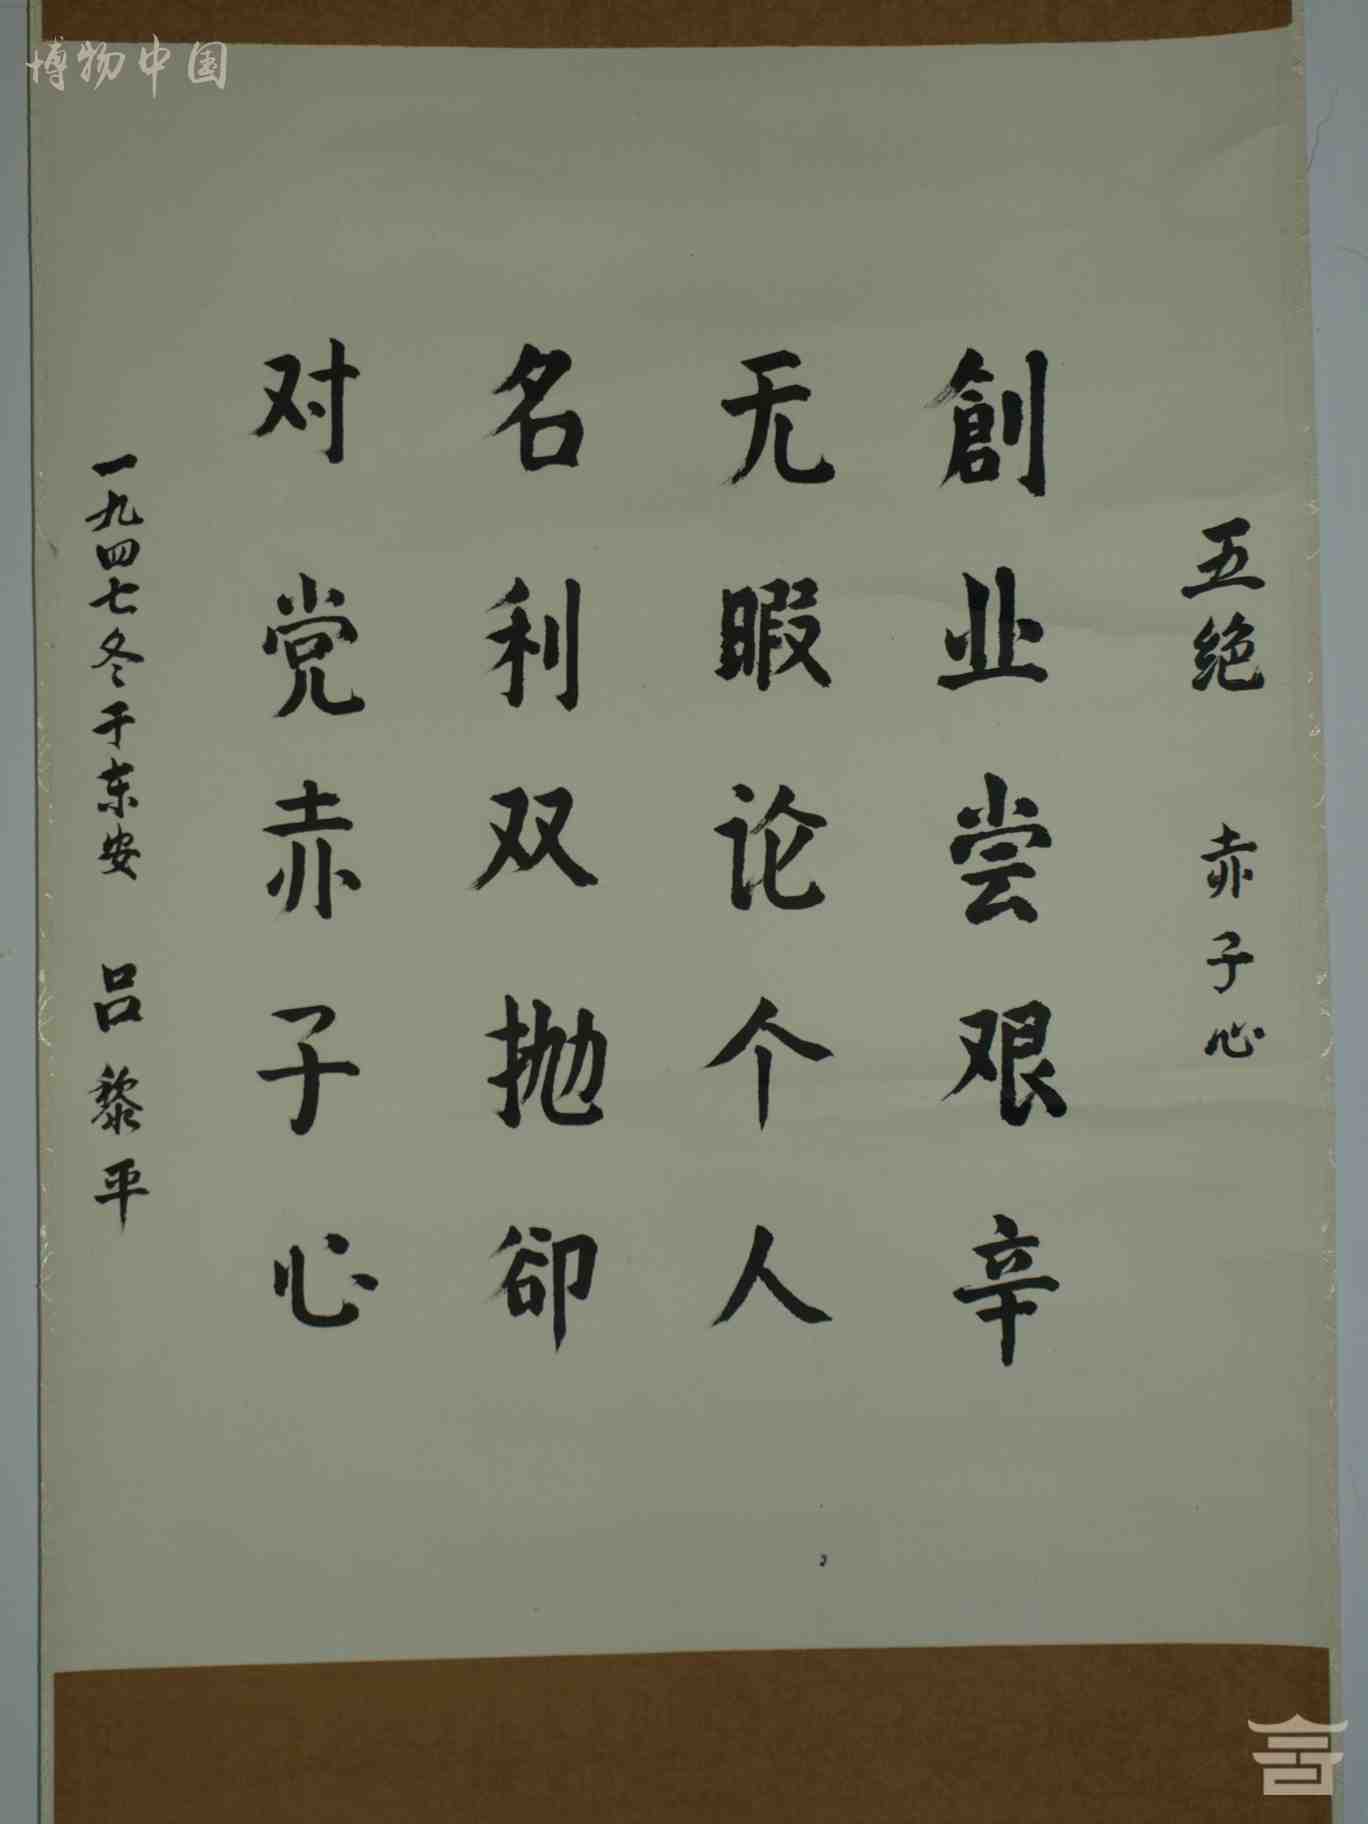 博物中国
五绝 赤子心
創业尝艰辛
无暇论个人
名利双抛卻
对党赤子心
一九四七冬于东安 吕黎平